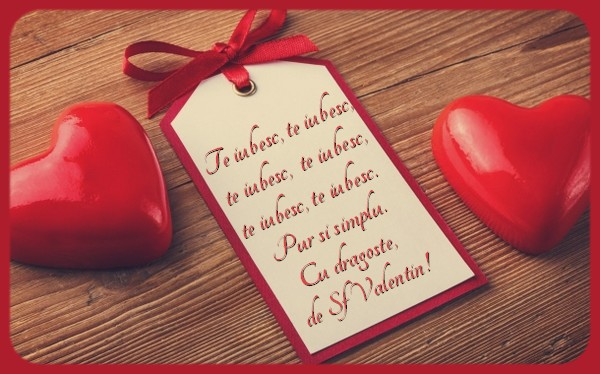 Te iubesc, te iubesc,
te iubesc, te iubesc,
te iubesc, te iubesc.
Pur si simplu.
Cu dragoste,
de Sf Valentin!